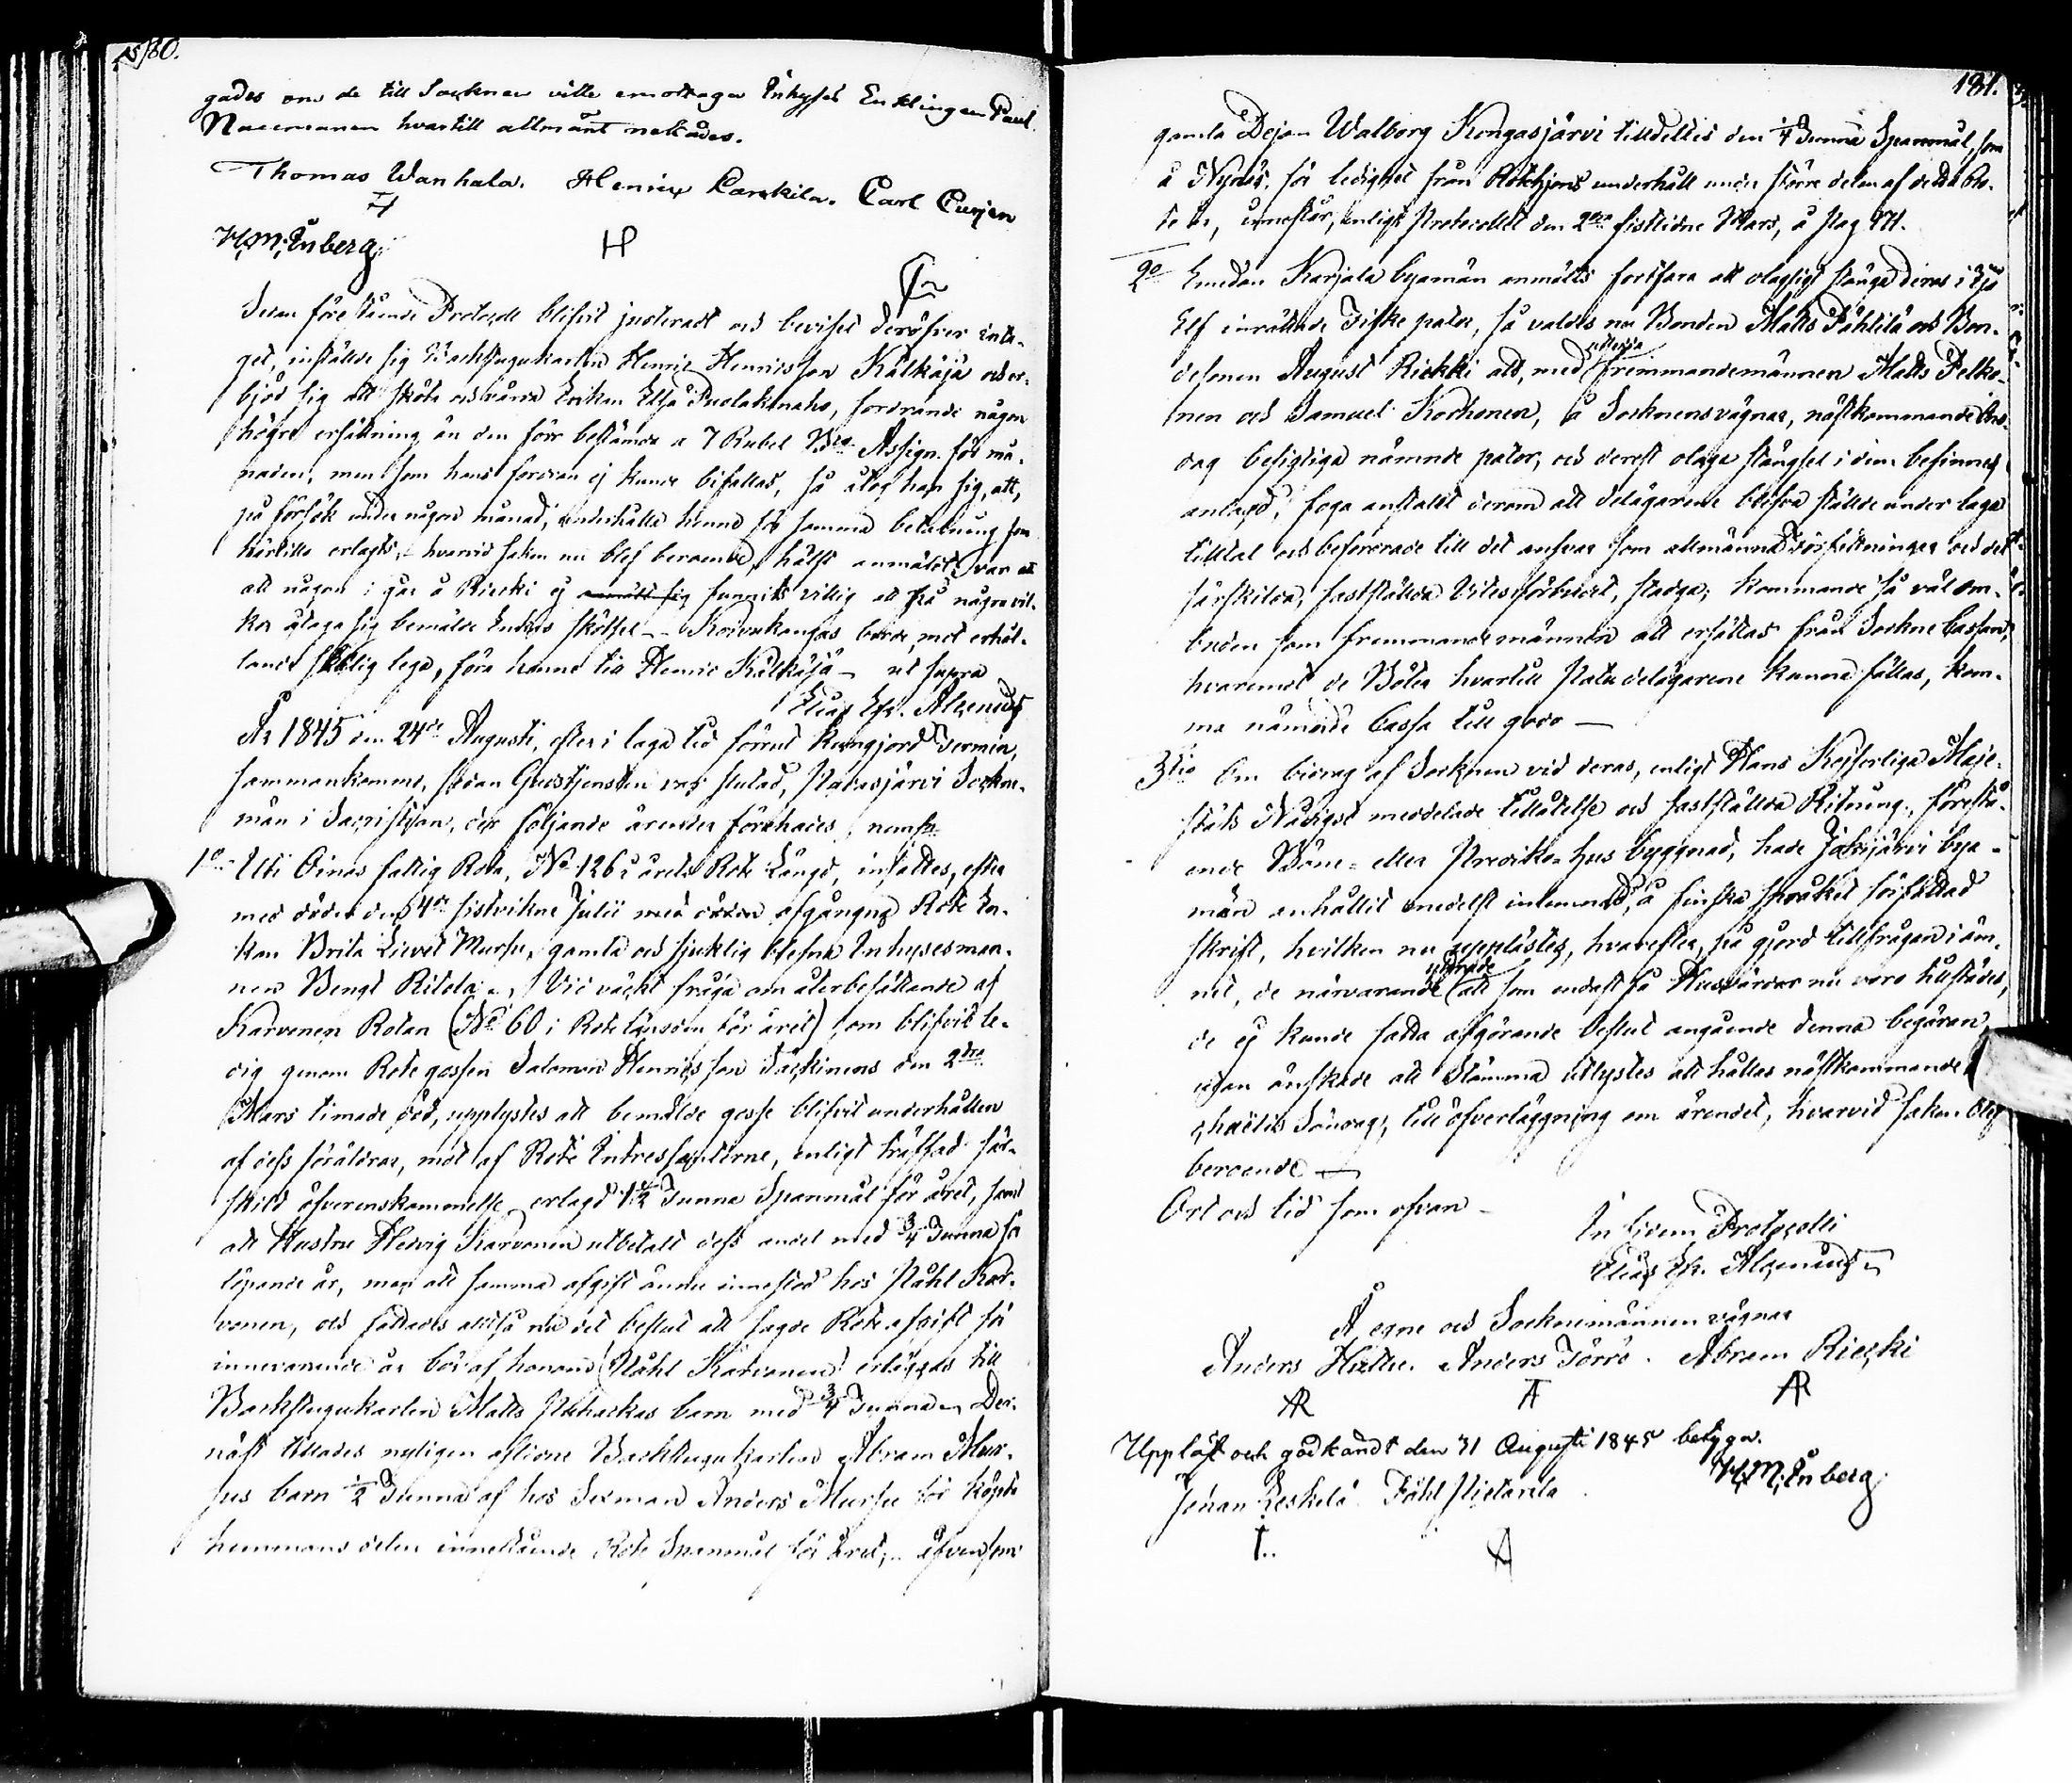 180.
gades om de till Socknen ville emottaga Inhyses Enklingen Paul
hvartill allmänt nekades.
Thomas Wanhala. Henric Carl
H
H. M. Enberg
Sedan förestående Protocoll blifvit justeradt och beviset deröfver inta-
get, inställde sig Backstugukarlen Henric Henricsson Kälkäjä och er-
bjöd sig att sköta och vårda Enkan fordrande någon
högre ersättning än den förr bestämda a 7 Rubel Bco Assign. för må-
naden, men som hans fordran ej kunde bifallas, så åtog han sig, att,
på försök under någon månad, underhålla henne för samma betalning som
härtills erlagts, hvarvid saken nu blef beroende, hälst anmäldt var
att någon i går å Riecki ej funnits villig att på några vil-
kor åtaga sig bemälde Enkas skötsel - Koivukangas borde, mot erhål-
lande skälig lega, föra henne till Henric Kälkäjä - ut supra
Elias Alcenius
År 1845 den 24de Augusti, efter i laga tid förut kungjord termin,
sammankommo, sedan Gudstjensten var slutad, Socken-
män i Sacristian, der följande ärender förehades, nemligen
1o Uti Oinas fattig Rota, No 126 i årets Rote Längd, insattes, efter
med döden den 4de sistvikne Julii afgångna Rote En-
kan Brita Murse, gamla och sjuklig blefna Inhysesman-
nen Bengt Ritola. Vid väckt fråga om återbesättande af
Karvonen Rotan (No 60 i Rotelängden för året) som blifvit le-
dig genom Rotegossen Salomon Henricsson den 2dra
Mars timade död, upplystes att bemälde gosse blifvit underhållen
af dess föräldrar, mot af Rote Intressenterne, enligt träffad sär-
skild öfverenskommelse erlagd 1½ Tunna Spanmål för året, samt
att Hustru Hedvig Karvonen utbetalt dess andel med ¾ Tunna för
löpande år, men att samma afgift ännu innestod hos Påhl Kar-
vonen, och fattades alltså nu det beslut att sagde Roteafgift för
innevarande år bör af honom (Påhl Karvonen) erläggas till
Backstugukarlen Matts barn med ¾ Tunna. Der-
näst tillades nyligen aflidne Backstugukarlen Abram Mur-
ses barn ½ Tunna af hos Sexman Anders Mursu för köpte
hemmans delen innestående Rote Spanmål för året, äfvensom
181.
gamla Dejan Walborg Kongasjärvi tilldeltes den ¼ Tunna Spanmål, som
å Nyåls, för ledighet från Rotehjons underhåll under större delen af detta Ro-
te år, innestår, enligt Protocollet den 2dra sistlidne Mars, å Pag 171.
2o Emedan Karjala byamän anmälts fortfara att olagligt stänga deras i
Elf inrättade Fiske pator, så valdes nu Bonden Matts Pähtilä och Bon-
desonen August Riekki att, med främmandemännen Matts Pelko-
nen och Samuel Korhonen, å Socknens vägnar, nästkommande Ons-
dag besigtiga nämnde pator, och derest olaga stängsel i dem befinnes
anlagd, foga anstalt derom att delägarene blefve ställde under laga
tilltal och befordrade till det ansvar som allmänna författningar och det
särskilda, fastställda Vitesförbudet, stadga, kommande så väl om-
buden som främmande männen att ersättas från Sockne Cassan,
hvaremot de Böter hvartill Pata delägarene kunna fällas, kom-
ma nämnde Cassa till godo —
3tio Om bidrag af Socknen vid deras, enligt Hans Kejserliga Maje-
stäts Nådigst meddelade tillåtelse och fastställda Ritning, förestå-
ende Böne- eller Predikohus byggnad, hade Jokijärvi bya-
män anhållit medelst inlemnad, å finska språket författad
skrift, hvilken nu upplästes, hvarefter, på gjord tillfrågan i äm-
net, de närvarande yttrade att som endast få Husbönder nu voro tillstädes,
de ej kunde fatta afgörande beslut angående denna begäran,
utan önskade att Stämma utlystes att hållas nästkommande
chaëlis Söndag, till öfverläggning om ärendet, hvarvid saken blef
beroende —
Ort och tid som ofvan —
In fidem Protocolli
Elias Alcenius
Å egne och Sockenmännens vägnar
Anders Anders Törrö. Abram Riecki
AR A AR
Uppläst och godkändt den 31 Augusti 1845 betyga.
H. M. Enberg
Johan Leskelä Påhl Pietarila